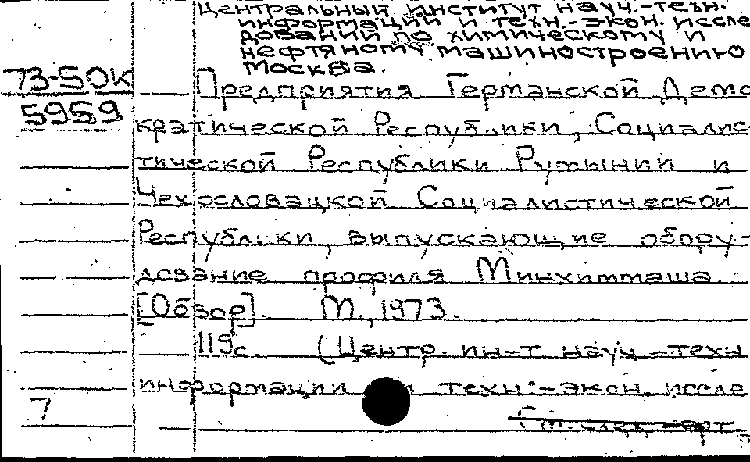 Центральный институт науч.-техн.
информации и техн.-экон. иссле
дований по химическому и
нефтяному машиностроению
Москва.
73-50к
5959
Предприятия Германской Демо
кратической Республики, Социалис
тической Республики Румынии и
Чехословацкой Социалистической
Республики, выпускающие обору-
дование профиля Минхиммаша.
[Обзор]. М., 1973.
119с. (Центр. ин-т науч.-техн
информации и техн.-экон. иссле
7
См. след.